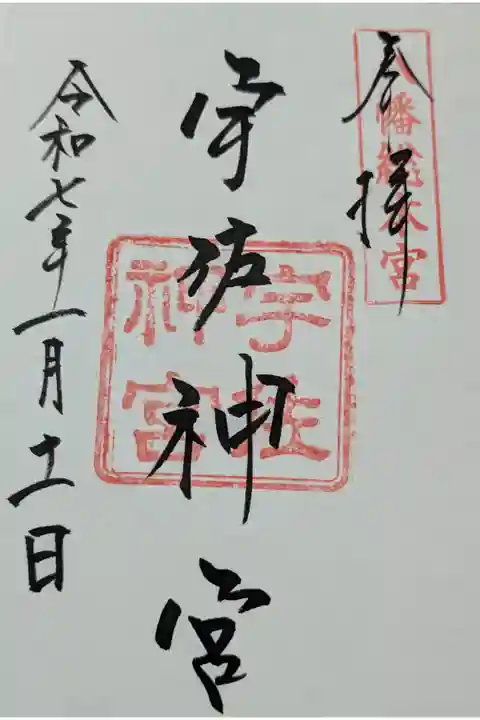 奉拝
八幡総本宮
宇佐神宮
宇佐
神宮
令和七年一月十一日